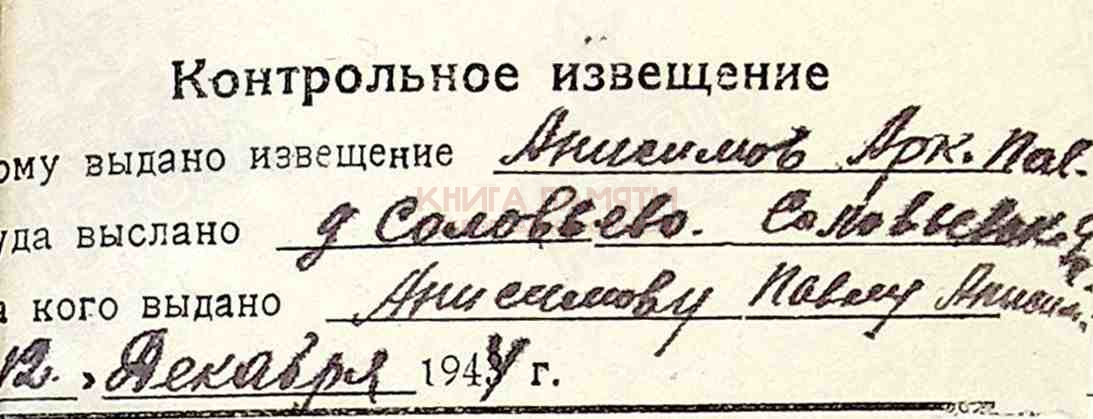 Контрольное извещение
ому выдано извещение Анисимов Арк. Пав.
уда выслано д Соловьево. Соловьевск.
а кого выдано Анисимову Павлу Анисим.
КНИГА ПАМЯТИ
12. Декабря 1944 г.